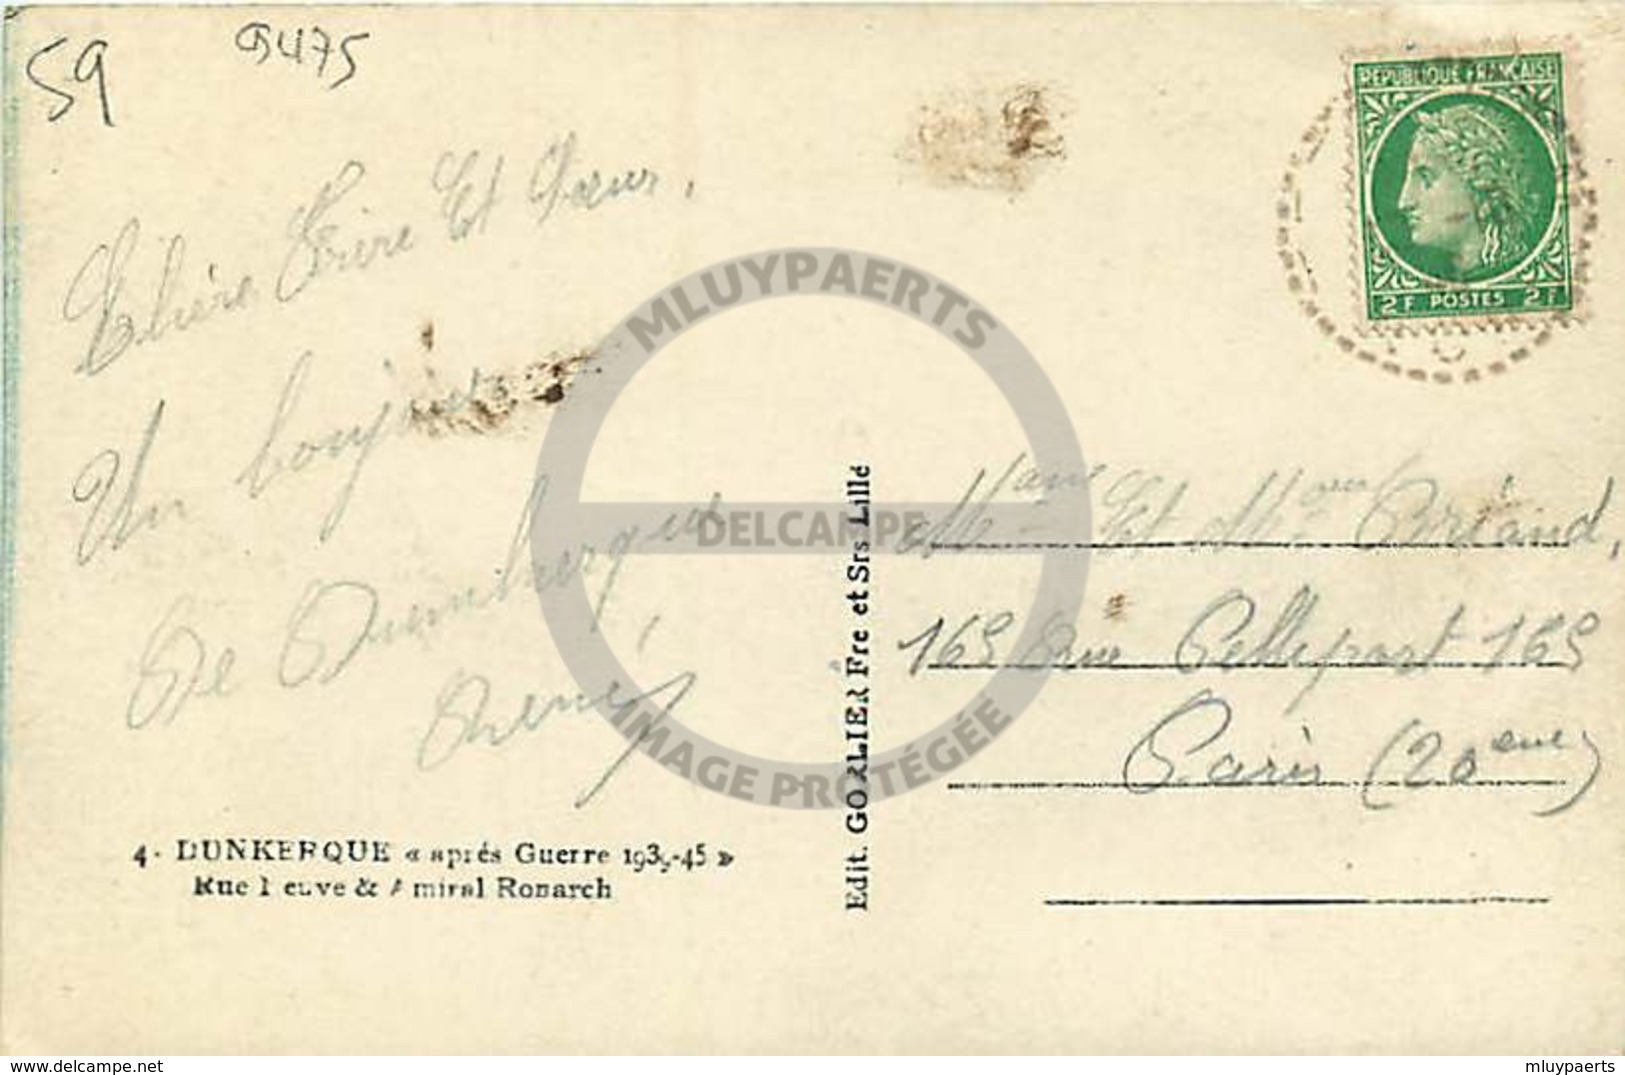 59
B475
REPUBLIQUE FRANÇAISE
2F POSTES 2F
Chère Frère Et Sœur,
Un bonjour
De Dunkerque
René
Et Mme Briand,
165 Rue Pelleport 165
Paris (20eme)
4. DUNKERQUE « après Guerre 1939-45 »
Rue Neuve & Amiral Ronarch
Edit. GORLIER Fre et Srs Lille
MLUYPAERTS
DELCAMPE
IMAGE PROTÉGÉE
www.delcampe.net
mluypaerts